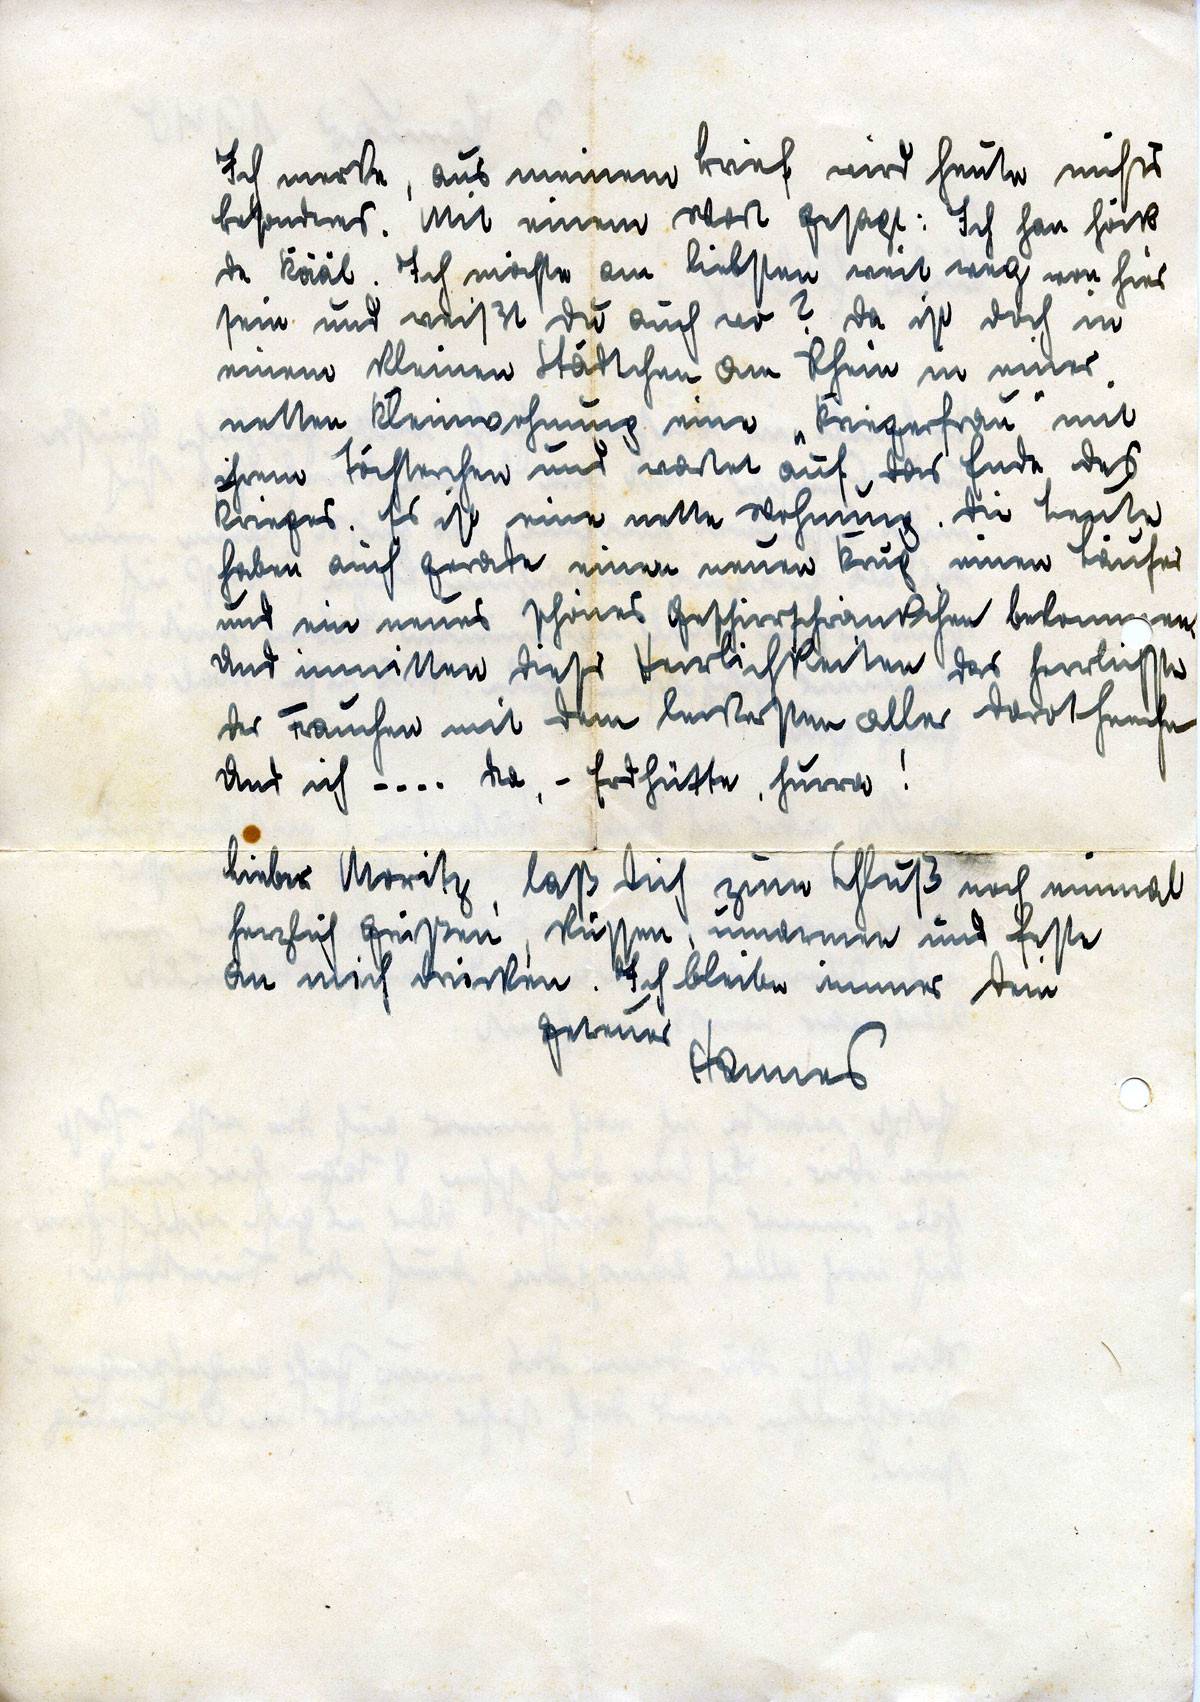 Ich merke, aus meinem Brief wird heute nichts
besonderes. Mit einem Wort gesagt: Ich han höck
de Kääl. Ich möchte am liebsten weit weg von hier
sein und weißt Du auch wo? Da ist doch in
einem kleinen Städtchen am Rhein in einer
netten Kleinwohnung eine „Kriegerfrau" mit
ihrem Töchterchen und wartet auf das Ende des
Krieges. Es ist eine nette Wohnung. Die Leute
haben auch gerade einen neuen Krug, einen Läufer
und ein neues schönes Geschirrschränkchen bekommen.
Und inmitten dieser Herrlichkeiten das herrlichste
der Frauchen mit dem leckersten aller
Und ich .... na, - Erdhütte, hurra!
Lieber Moritz, laß Dich zum Schluß noch einmal
herzlich grüßen, küssen, umarmen und feste
an mich drücken. Ich bleibe immer Dein
getreuer
Hannes